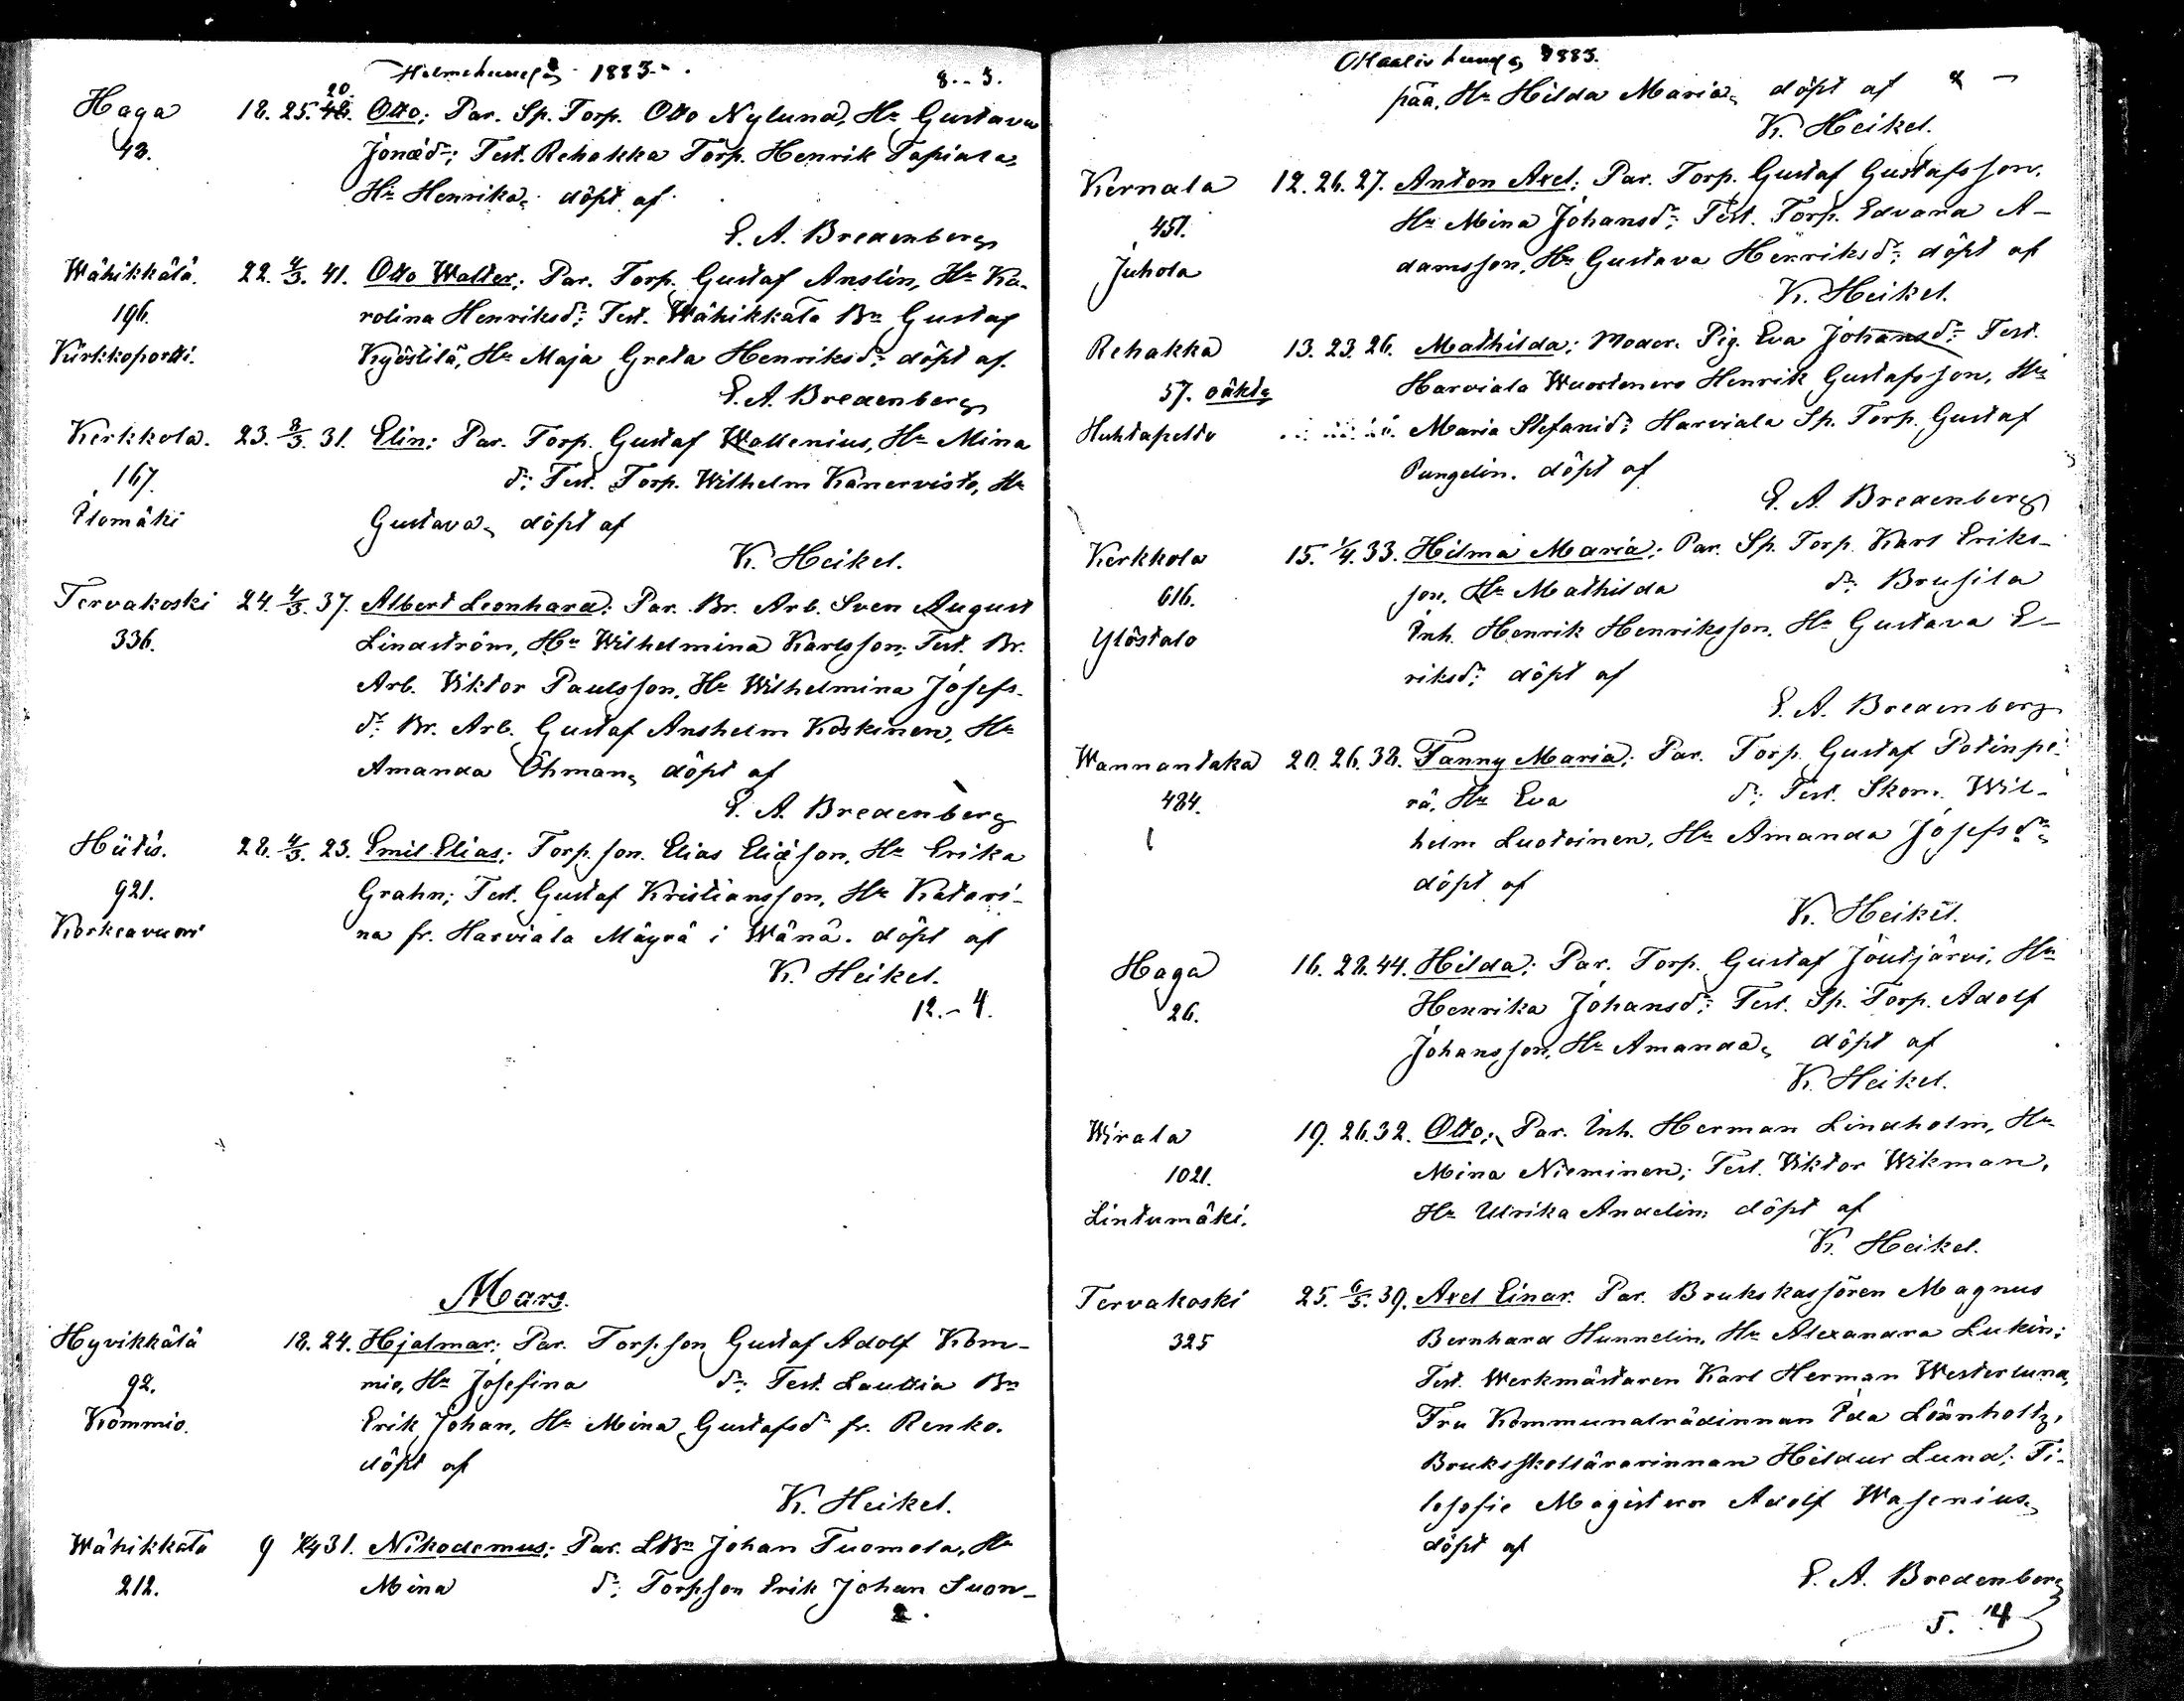 Helmekuussa 1883.
8.-3.
Haga 18. 25. 20. 48. Otto; Par. Sp. Torp. Otto Nylund, Hu Gustava
43. Jonæd:r; Test. Rehakka Torp. Henrik Tapiala,
Hu Henrika, döpt af
E. A. Bredenberg
Wähikkälä 22. 4/3. 41. Otto Walter; Par. Torp. Gustaf Anslin, Hu Ka-
196. rolina Henriksd:r; Test. Wähikkälä Bn Gustaf
Kyöstilä, Hu Maja Greta Henriksd:r döpt af.
E. A. Bredenberg
Kerkkola. 23. 8/3. 31. Elin; Par. Torp. Gustaf Wallenius, Hu Mina
167. d:r; Test. Torp. Wilhelm Kanervisto, Hu
Ilomäki Gustava, döpt af
K. Heikel.
Tervakoski 24. 4/3. 37. Albert Leonhard; Par. Br. Arb. Sven August
336. Lindström, Hu Wilhelmina Karlsson; Test. Br.
Arb. Viktor Paulsson, Hu Wilhelmina Josefs-
d:r Br. Arb. Gustaf Anshelm Koskinen, Hu
Amanda Öhman, döpt af
E. A. Bredenberg
Hiitis. 28. 4/3. 23. Emil Elias; Torp. son. Elias Eliæson, Hu Erika
921. Grahn; Test. Gustaf Kristiansson, Hu Katari-
Korkeavuori na fr. Harviala Mäyrä i Wånå. döpt af
K. Heikel.
12.-4.
Mars.
Hyvikkälä 18. 24. Hjalmar; Par. Torp. son Gustaf Adolf Köm-
92. miö, Hu Josefina d:r; Test. Lauttia Bn
Kömmiö. Erik Johan, Hu Mina Gustafsd:r fr. Renko.
döpt af
K. Heikel.
Wähikkälä 9 31. Nikodemus; Par. LBn Johan Tuomola, Hu
212. Mina d:r; Torp son Erik Johan Suon-
2.
Maaliskuussa 1883.
pää, Hu Hilda Maria, döpt af
K. Heikel.
Kernala 12. 26. 27. Anton Axel; Par. Torp. Gustaf Gustafsson,
451. Hu Mina Johansd:r; Test. Torp. Edvard A-
Juhola damsson, Hu Gustava Henriksd:r döpt af
K. Heikel.
Rehakka 13. 23. 26. Mathilda; Moder. Pig. Eva Johansd:r Test.
57. oäkta Harviala Wuorteners Henrik Gustafsson, Hu
Huhtapelto Maria Stefansd:r Harviala Sp. Torp. Gustaf
Pungelin. döpt af
E. A. Bredenberg
Kerkkola 15. 1/4. 33. Hilma Maria; Par. Sp. Torp. Karl Eriks-
616. son, Hu Mathilda d:r Brusila
Ylöstalo Inh. Henrik Henriksson, Hu Gustava E-
riksd:r döpt af
E. A. Bredenberg
Wannantaka 20. 26. 38. Fanny Maria; Par. Torp. Gustaf Potinpe-
484. rä, Hu Eva d:r; Test. Skom. Wil-
helm Luotoinen, Hu Amanda Josefsd:r
döpt af
K. Heikel.
Haga 16. 28. 44. Hilda; Par. Torp. Gustaf Joutjärvi, Hu
26. Henrika Johansd:r; Test. Sp. Torp. Adolf
Johansson, Hu Amanda, döpt af
K. Heikel.
Wirala 19. 26. 32. Otto; Par. Inh. Herman Lindholm, Hu
1021. Mina Nieminen; Test. Viktor Wikman,
Lintumäki. Hu Ulrika Andelin; döpt af
K. Heikel.
Tervakoski 25. 6/5. 39. Axel Einar. Par. Brukskassören Magnus
325 Bernhard Hunnelin, Hu Alexandra Lukin;
Test. Werkmästaren Karl Herman Westerlund,
Fru Kommunalrådinnan Ida Lönnholtz,
Bruksskollärarinnan Hildur Lund; Fi-
losofie Magistern Adolf Wasenius,
döpt af
E. A. Bredenberg
5. 4